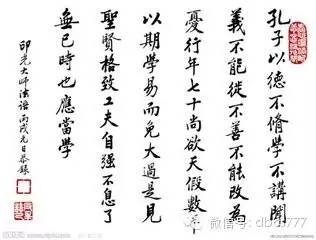 孔子以德不脩學不講聞
義不能徙不善不能改為
憂行年七十尚欲天假數年
以期學易而免大過是見
聖賢格致工夫自强不息了
無已時也應當學
印光大師法語 丙戌元日恭錄
微信号: